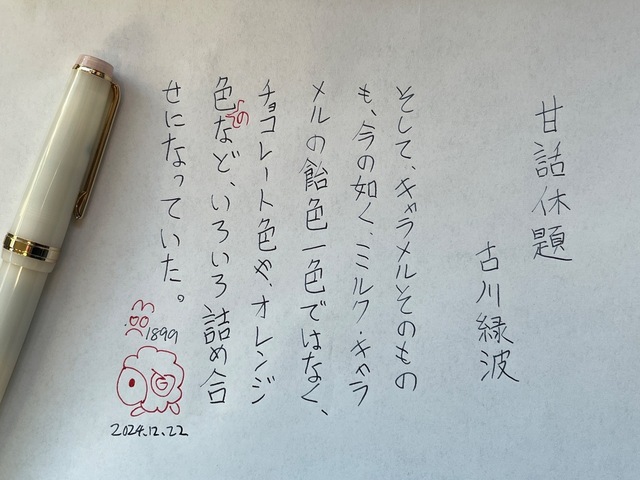 甘話休題
古川緑波
そして、キャラメルそのもの
も、今の如く、ミルク・キャラ
メルの飴色一色ではなく、
チョコレート色や、オレンジ
色のなど、いろいろ詰め合
せになっていた。
1899
2024.12.22